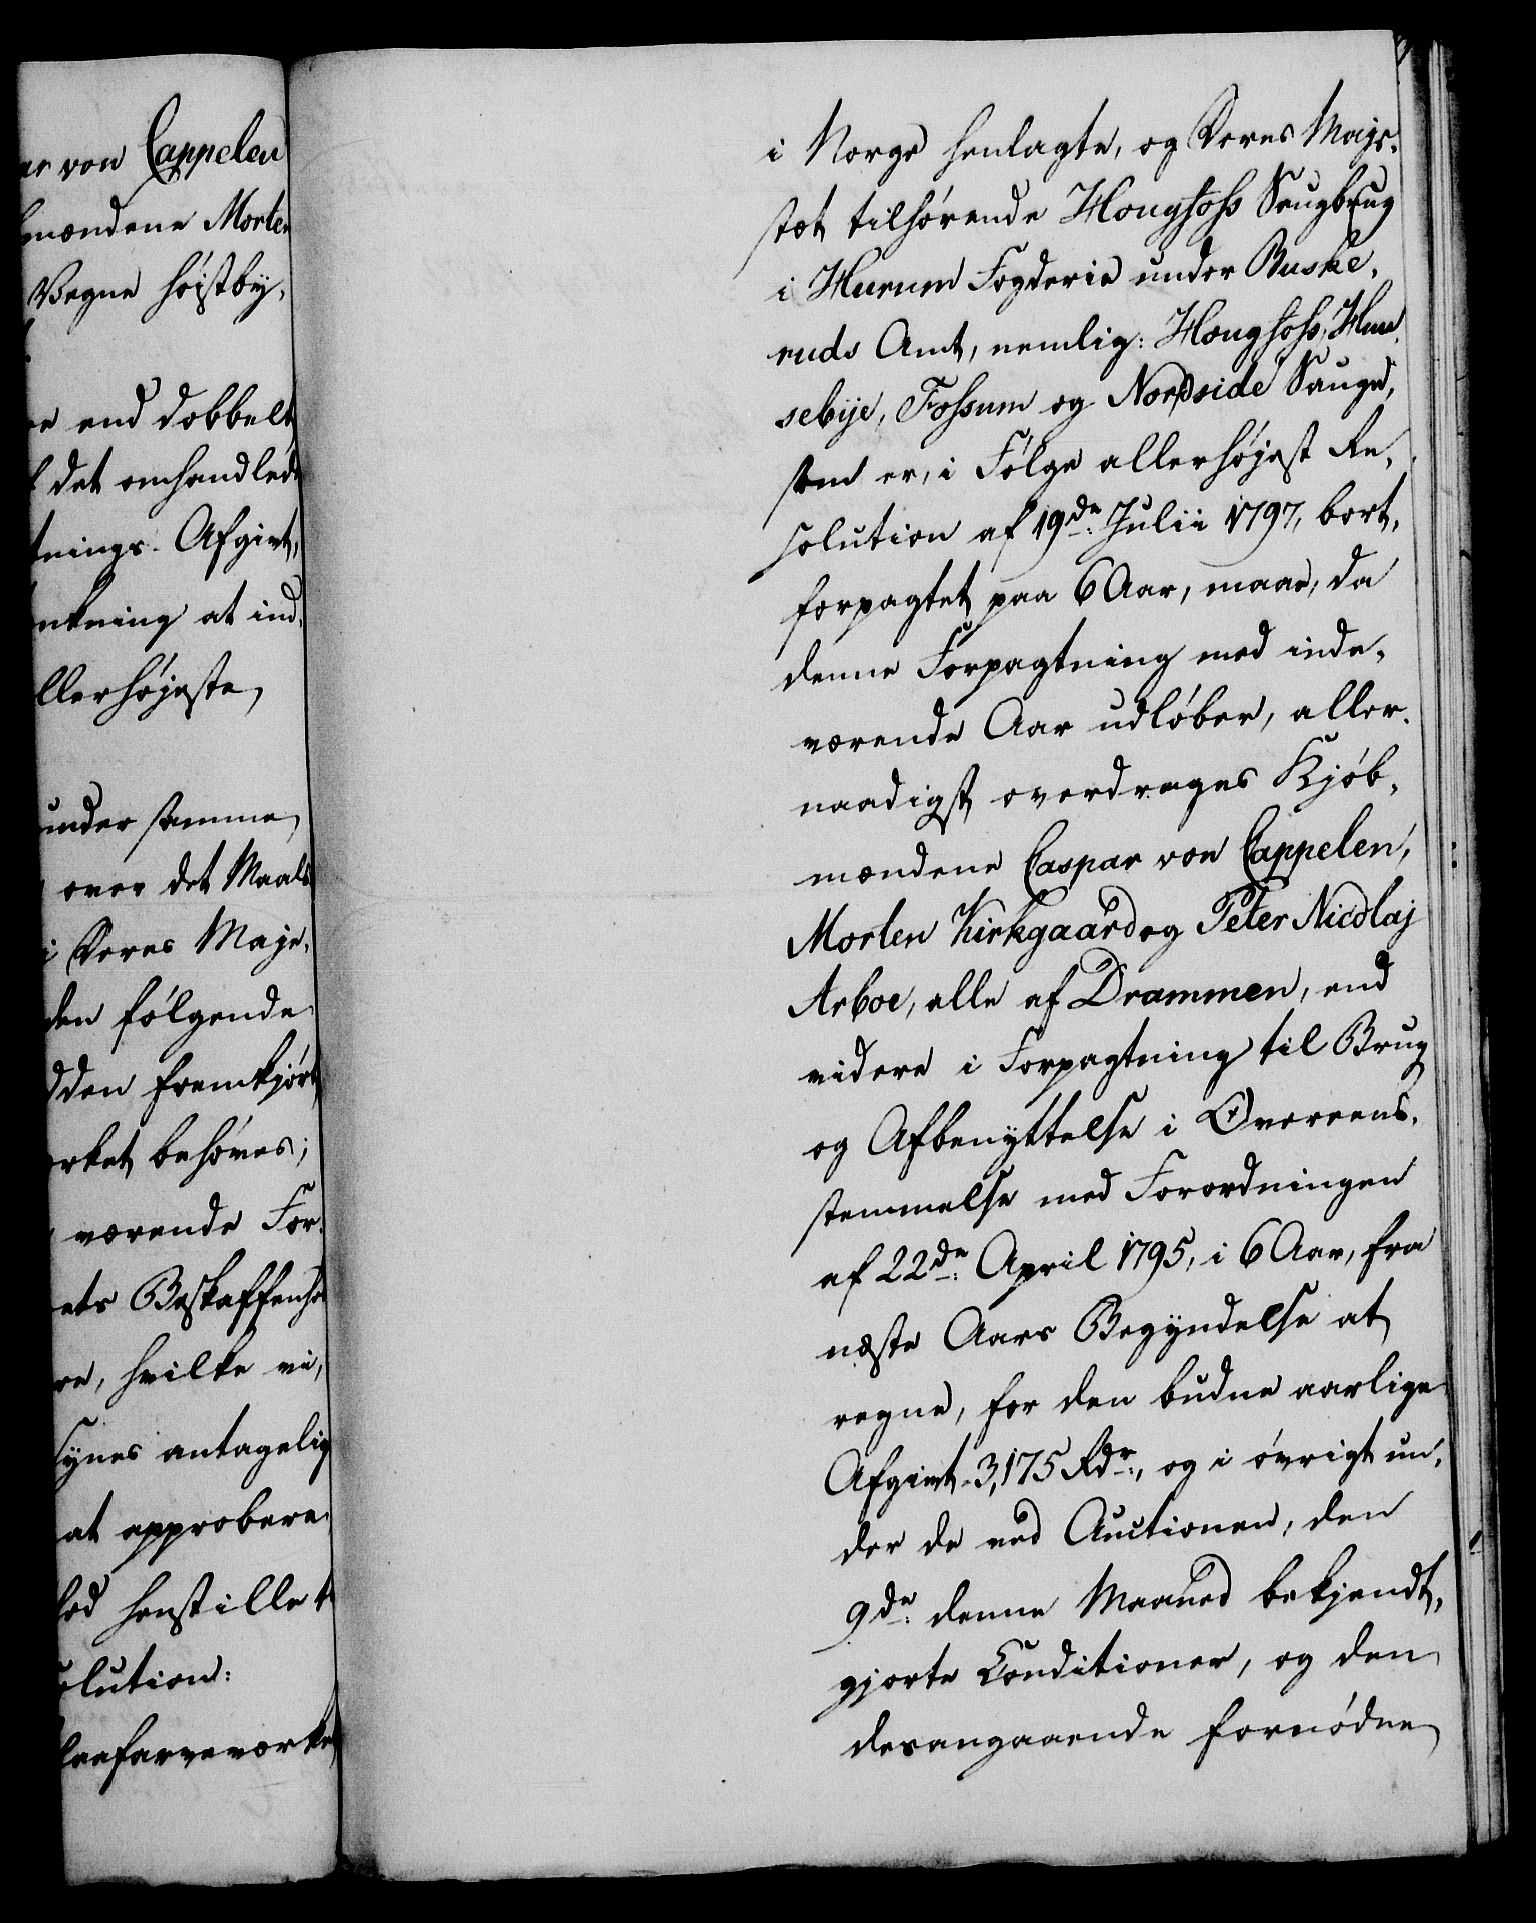 er von Cappelen
mændene Morten
Vegne höistby-
re end dobbelt
det omhandlede
tnings-Afgivt,
nkning at ind-
llerhöjeste,
under samme,
over det Maals
i Deres Maje-
den fölgende
dden fremkjört
rket behöves;
værende For-
ets Beskaffenhed
re, hvilke vi,
synes antagelig
at approbere
hed henstillet
olution:
laafarveværket
i Norge henlagte, og Deres Maje-
stæt tilhörende Hougfoss Saugbrug
i Hurum Fogderie under Buske-
ruds Amt, nemlig: Hougfoss, Huse-
sebije, Fossum og Nordside Sauge,
som er, i Fölge allerhöjest Re-
solution af 19de Julii 1797, bort-
forpagtet paa 6 Aar, maae, da
denne Forpagtning med inde-
værende Aar udlöber, aller-
naadigst overdrages Kjöb-
mændene Caspar von Cappelen,
Morten Kirkgaard og Peter Nicolaj
Arboe, alle af Drammen, end
videre i Forpagtning til Brug
og Afbenyttelse i Overeens-
stemmelse med Forordningen
af 22de April 1795, i 6 Aar, fra
næste Aars Begyndelse at
regne, for den budne aarlige
Afgivt 3,175 Rdr., og i övrigt un-
der de ved Auctionen, den
9de denne Maaned bekjendt-
gjorte Conditioner, og den
desangaaende fornödne